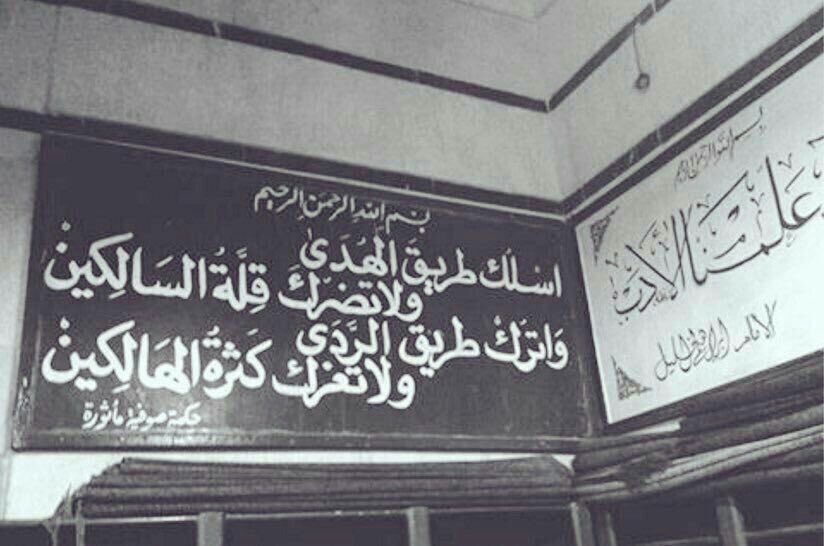 بسم الله الرحمن الرحيم
اسلك طريق الهدى ولا تضرك قلة السالكين
واترك طريق الردى ولا تغرك كثرة الهالكين
حكمة صوفية مأثورة
بسم الله الرحمن الرحيم
علمنا الأدب